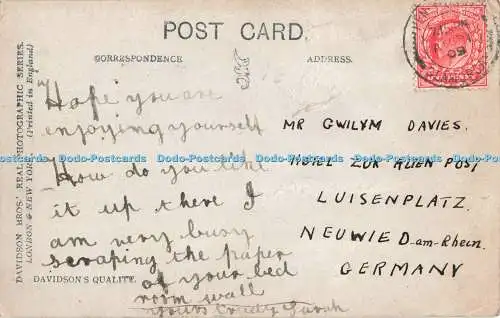 POST CARD.
CORRESPONDENCE
ADDRESS.
DAVIDSON BROS.' REAL PHOTOGRAPHIC SERIES.
LONDON & NEW YORK. (Printed in England)
Hope you are
enjoying yourself
How do you like
it up there I
am very busy
scraping the paper
of your bed
room wall
yours truly Sarah
DAVIDSON'S QUALITY.
MR GWILYM DAVIES.
HOTEL ZUR ALTEN POST,
LUISENPLATZ.
NEUWIED-am-Rhein.
GERMANY
Dodo-Postcards Dodo-Postcards Dodo-Postcards Dodo-Postcards Dodo-Postcards